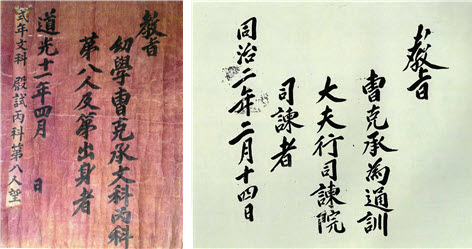 敎旨
幼學曺克承文科丙科
第八人及第出身者
道光十一年四月 日
式年文科殿試丙科第八人望
敎旨
曺克承為通訓
大夫行司諫院
司諫者
同治二年二月十四日